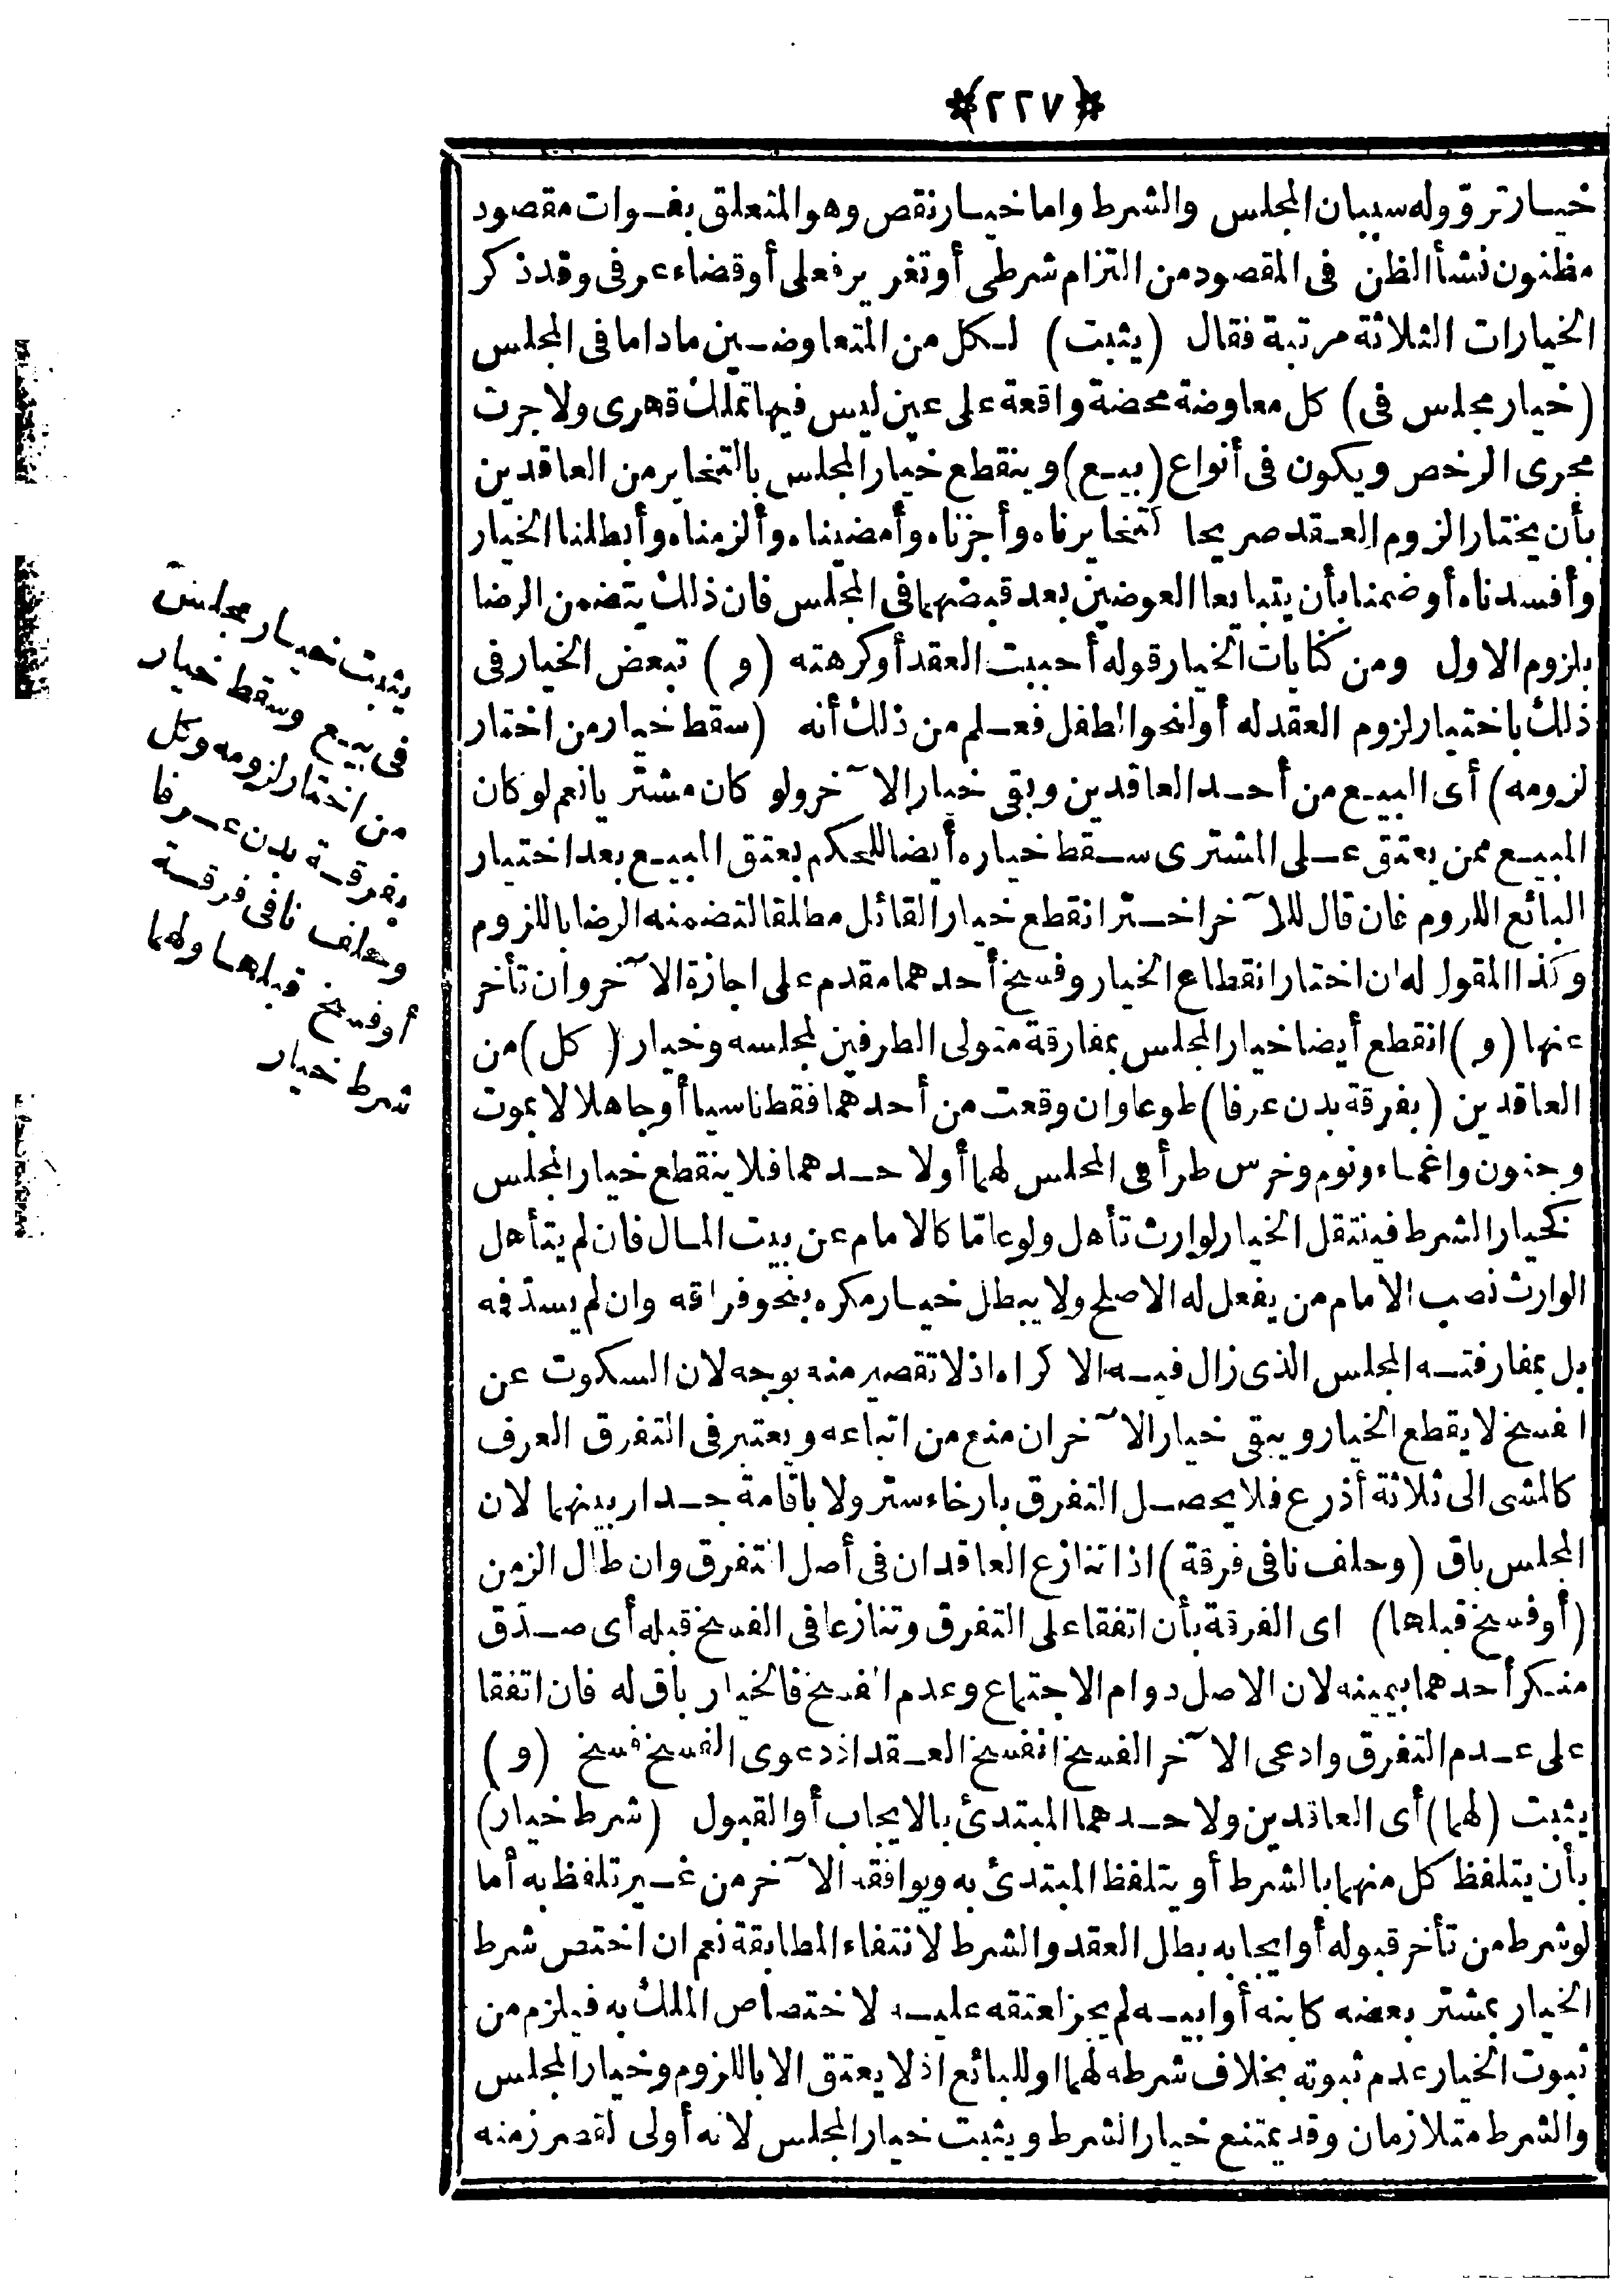 ﴿٢٢٧﴾
خيار تروّ وله سببان المجلس والشرط واما خيار نقص وهو المتعلق بفوات مقصود
مظنون نشأ الظن فى المقصود من التزام شرطى أو تغرير فعلى أو قضاء عرفى وقد ذكر
الخيارات الثلاثة مرتبة فقال (يثبت) لكل من المتعاوضين ماداما فى المجلس
(خيار مجلس فى) كل معاوضة محضة واقعة على عين ليس فيها تملك قهرى ولا جرت
مجرى الرخص ويكون فى أنواع (بيع) وينقطع خيار المجلس بالتخاير من العاقدين
بأن يختارا لزوم العقد صريحا كتخايرناه وأجزناه وأمضيناه وألزمناه وأبطلنا الخيار
وأفسدناه أو ضمنا بأن يتبايعا العوضين بعد قبضهما فى المجلس فان ذلك يتضمن الرضا
بلزوم الاول ومن كنايات الخيار قوله أحببت العقد أو كرهته (و) تبعض الخيار فى
ذلك باختيار لزوم العقد له أو لنحو الطفل فعلم من ذلك أنه (سقط خيار من اختار
لزومه) أى البيع من أحد العاقدين وبقى خيار الآخر ولو كان مشتريا نعم لو كان
المبيع ممن يعتق على المشترى سقط خياره أيضا للحكم بعتق المبيع بعد اختيار
البائع اللزوم فان قال للآخر اختر انقطع خيار القائل مطلقا لتضمنه الرضا باللزوم
وكذا المقول له ان اختار انقطاع الخيار وفسخ أحدهما مقدم على اجازة الآخر وان تأخر
عنها (و) انقطع أيضا خيار المجلس بمفارقة متولى الطرفين لمجلسه وخيار (كل) من
العاقدين (بفرقة بدن عرفا) طوعا وان وقعت من أحدهما فقط ناسيا أو جاهلا لا بموت
وجنون واغماء ونوم وخرس طرأ فى المجلس لهما أو لاحدهما فلا ينقطع خيار المجلس
كخيار الشرط فينتقل الخيار لوارث تأهل ولو عامّا كالامام عن بيت المال فان لم يتأهل
الوارث نصب الامام من يفعل له الاصلح ولا يبطل خيار مكره بنحو فراقه وان لم يسدّ فمه
بل بمفارقته المجلس الذى زال فيه الاكراه اذ لا تقصير منه بوجه لان السكوت عن
الفسخ لا يقطع الخيار ويبقى خيار الآخر ان منع من اتباعه ويعتبر فى التفرق العرف
كالمشى الى ثلاثة أذرع فلا يحصل التفرق بارخاء ستر ولا باقامة جدار بينهما لان
المجلس باق (وحلف نافى فرقة) اذا تنازع العاقدان فى أصل التفرق وان طال الزمن
(أو فسخ قبلها) اى الفرقة بأن اتفقا على التفرق وتنازعا فى الفسخ قبله أى صدّق
منكر أحدهما بيمينه لان الاصل دوام الاجتماع وعدم الفسخ فالخيار باق له فان اتفقا
على عدم التفرق وادعى الآخر الفسخ انفسخ العقد اذ دعوى الفسخ فسخ (و)
يثبت (لهما) أى العاقدين ولاحدهما المبتدئ بالايجاب أو القبول (شرط خيار)
بأن يتلفظ كل منهما بالشرط أو يتلفظ المبتدئ به ويوافقه الآخر من غير تلفظ به أما
لو شرط من تأخر قبوله أو ايجابه بطل العقد والشرط لانتفاء المطابقة نعم ان اختص شرط
الخيار بمشتر بعضه كابنه أو أبيه لم يجز لعتقه عليه لاختصاص الملك به فيلزم من
ثبوت الخيار عدم ثبوته بخلاف شرطه لهما او للبائع اذ لا يعتق الا باللزوم وخيار المجلس
والشرط متلازمان وقد يمتنع خيار الشرط ويثبت خيار المجلس لانه أولى لقصر زمنه
يثبت خيار مجلس
فى بيع وسقط خيار
من اختار لزومه وكل
بفرقة بدن عرفا
وحلف نافى فرقة
أو فسخ قبلها ولهما
شرط خيار